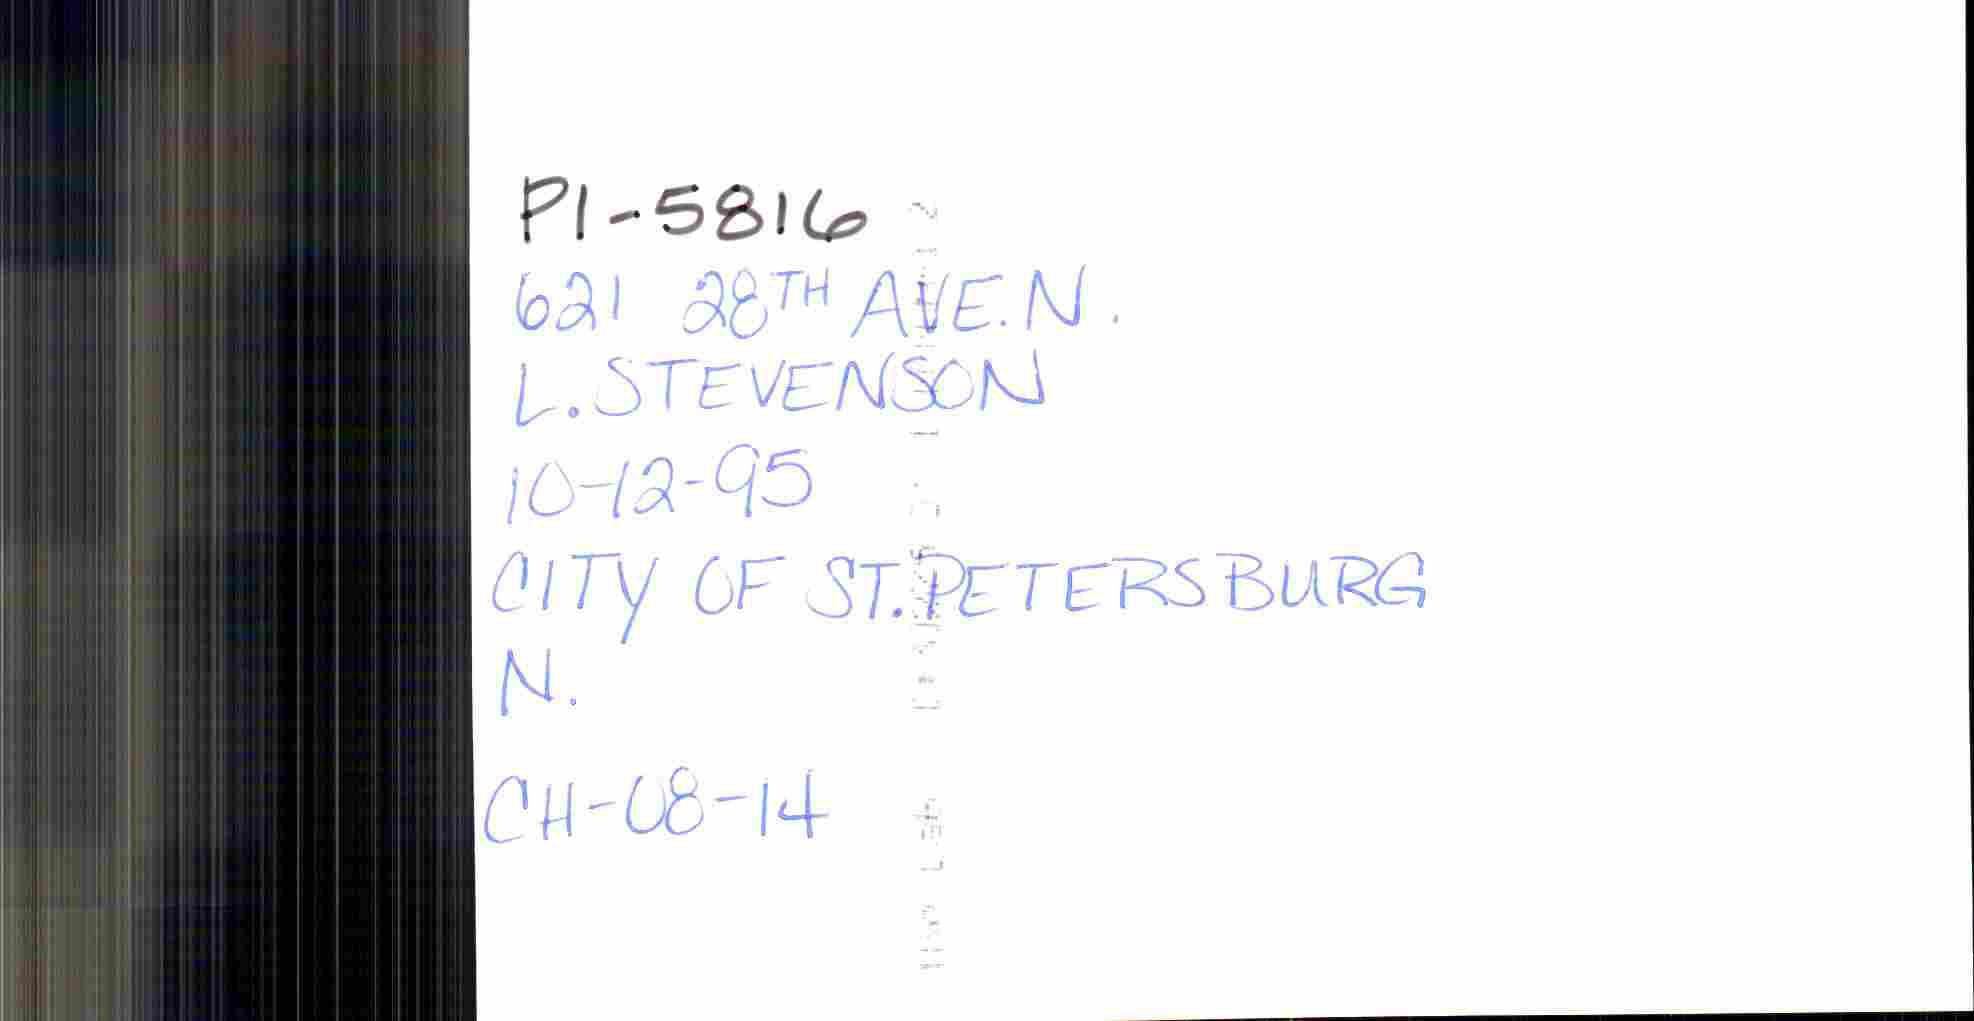 PI-5816
621 28TH AVE. N.
L. STEVENSON
10-12-95
CITY OF ST. PETERSBURG
N.
CH-08-14